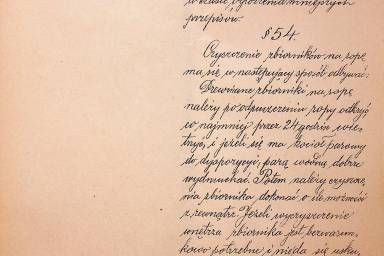 w czasie ogłoszenia niniejszych
przepisów.
§ 54.
Czyszczenie zbiorników na ropę
ma się w następujący sposób odbywać:
Drewniane zbiorniki na ropę
należy po odpuszczeniu ropy odkryć
co najmniej przez 24 godzin wie-
trzyć, i jeżeli się ma kocioł parowy
do dyspozycyi, parą wodną dobrze
wydmuchać. Potem należy czyszcze-
nia zbiornika dokonać o ile możności
z zewnątrz. Jeżeli wyczyszczenie
wnętrza zbiornika jest bezwarun-
kowo potrzebne i nieda się usku-